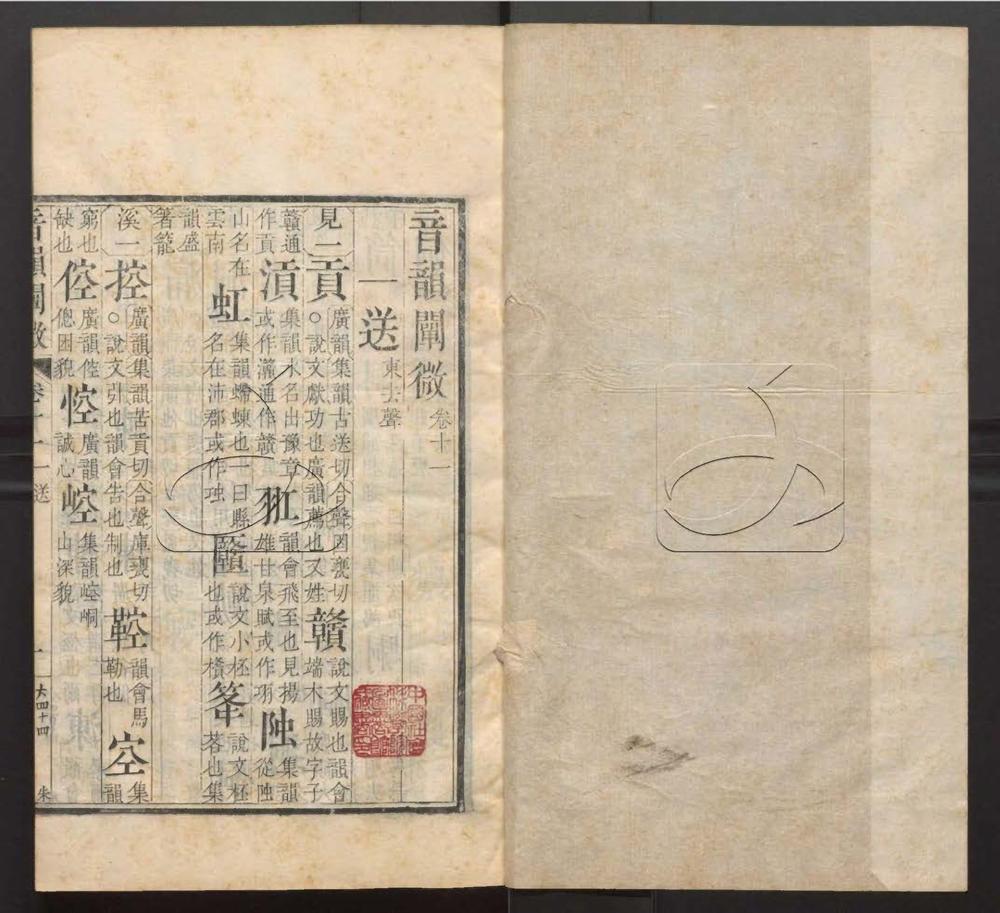 音韻闡微 卷十一
一送 東去聲
見一貢 廣韻集韻古送切合聲固甕切○說文獻功也廣韻薦也又姓 贛 說文賜也韻會端木賜故字子
贛通作貢 集韻水名出豫章或作灨通作贛 羾 韻會飛至也見揚雄甘泉賦或作 集韻從
山名在雲南 虹 集韻螮蝀也一曰縣名在沛郡或作 說文小桮也或作 說文桮笿也集
韻盛箸籠
溪一控 廣韻集韻苦貢切合聲庫甕切○說文引也韻會告也制也 鞚 韻會馬勒也 空 集韻
窮也缺也 倥 廣韻倥傯困貌 悾 廣韻誠心 崆 集韻崆峒山深貌
音韻闡微 卷十一 一送 一 大四十四 朱